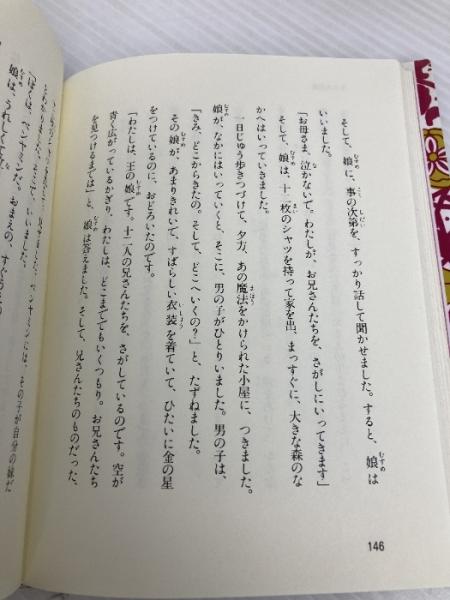 そして、娘に、事の次第を、すっかり話して聞かせました。すると、娘は
いいました。
「お母さま、泣かないで。わたしが、お兄さんたちを、さがしにいってきます」
そして、娘は、十二枚のシャツを持って家を出、まっすぐに、大きな森のな
かへはいっていきました。
一日じゅう歩きつづけて、夕方、あの魔法をかけられた小屋に、つきました。
娘が、なかにはいっていくと、そこに、男の子がひとりいました。男の子は、
「きみ、どこからきたの。そして、どこへいくの?」と、たずねました。
その娘が、あまりきれいで、すばらしい衣装を着ていて、ひたいに金の星
をつけているのに、おどろいたのです。
「わたしは、王の娘です。十二人の兄さんたちを、さがしているのです。空が
青く広がっているかぎり、わたしは、どこまででもいくつもり。お兄さんたち
を見つけるまでは」と、娘は答えました。そして、兄さんたちのものだった、
146
ベンヤミンには、その子が自分の妹だ
「ぼくは、ベンヤミンだ。おまえの、すぐうえの
娘は、うれしくて